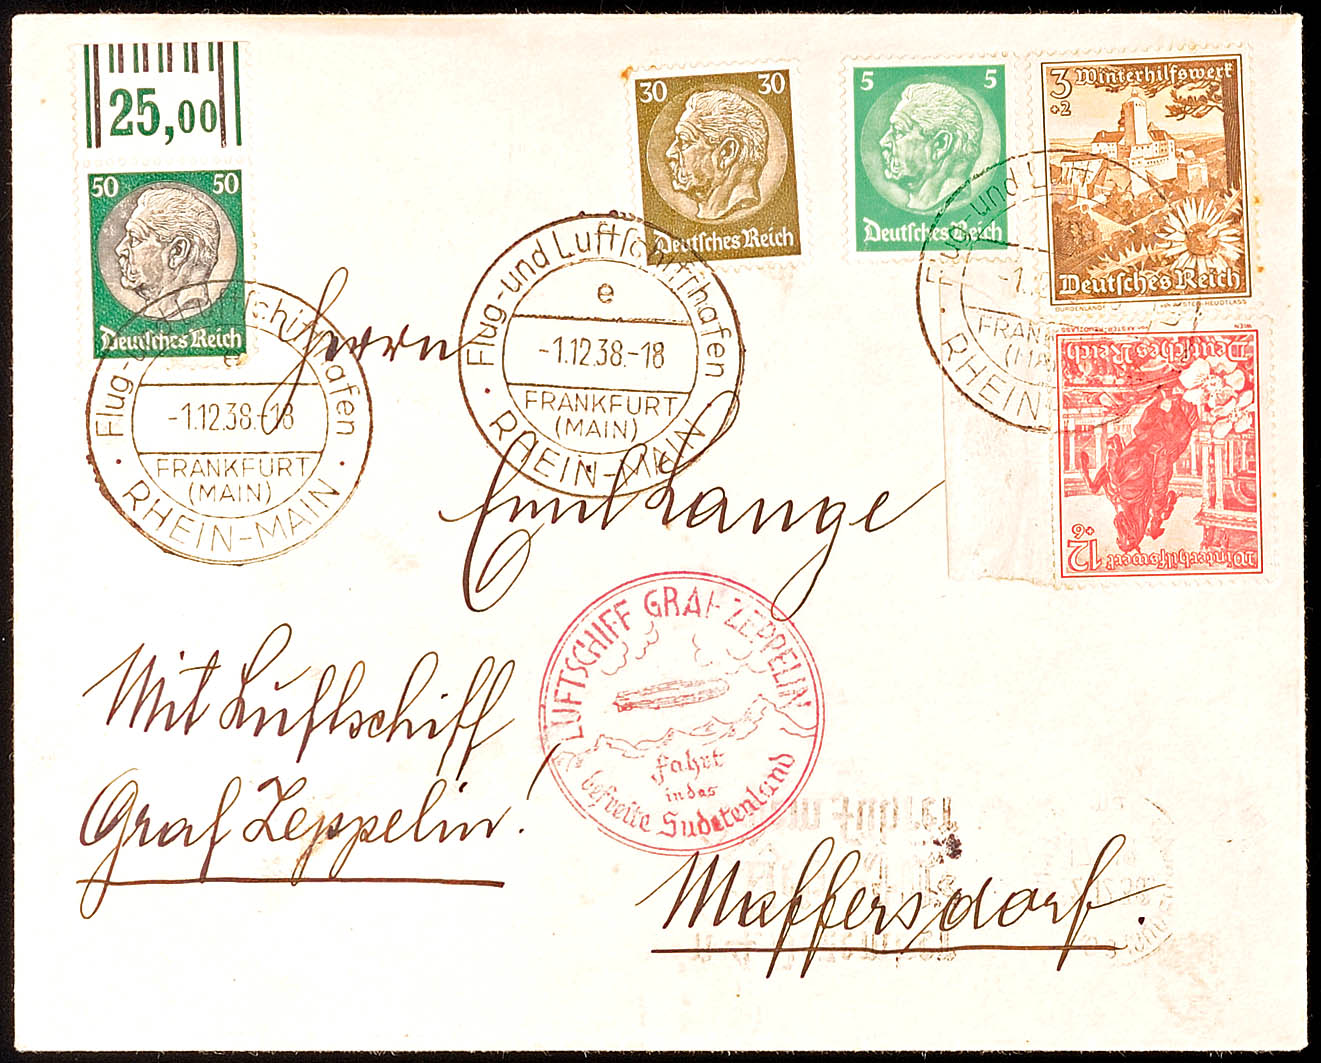 25,00
50 50
Deutsches Reich
30 30
Deutsches Reich
5 5
Deutsches Reich
3
+2
Winterhilfswerk
Deutsches Reich
BURGENLAND
12
+6
Winterhilfswerk
Deutsches Reich
WIEN
Flug-und Luftschiffhafen
e
-1.12.38.-18
FRANKFURT
(MAIN)
RHEIN-MAIN
Flug-und Luftschiffhafen
e
-1.12.38.-18
FRANKFURT
(MAIN)
RHEIN-MAIN
Flug-und Luft
-1.12
FRANK
(MA
RHEIN-
Herrn
Emil Lange
Mit Luftschiff
Graf Zeppelin!
LUFTSCHIFF GRAF ZEPPELIN
Fahrt
in das
befreite Sudetenland
Maffersdorf.